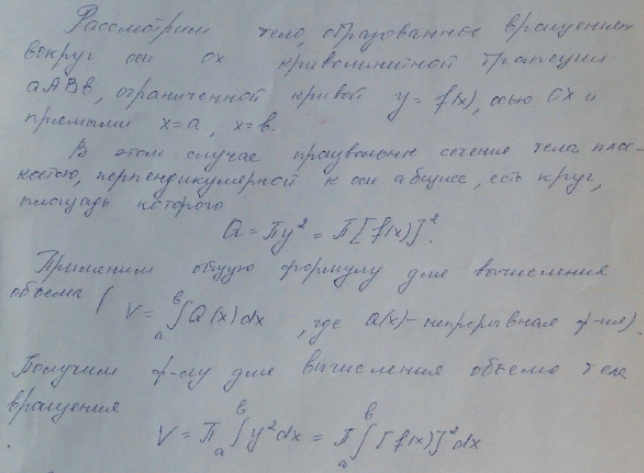 Рассмотрим тело, образованное вращением
вокруг оси Ox криволинейной трапеции
aABb, ограниченной кривой y = f(x), осью Ox и
прямыми x=a, x=b.
В этом случае произвольн сечение тела плос-
костью, перпендикулярной к оси абсцисс, есть круг,
площадь которого
Q = πy² = π[f(x)]².
Применим общую формулу для вычисления
объема ( V = ∫ₐᵇ Q(x)dx , где Q(x)-непрерывная ф-ция)
Получим ф-лу для вычисления объема тела
вращения
V = π ∫ₐᵇ y²dx = π ∫ₐᵇ [f(x)]²dx